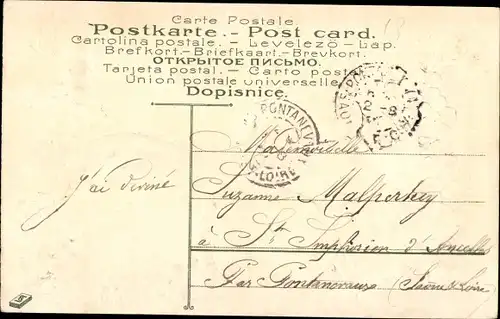 Carte Postale.
Postkarte. - Post card.
Cartolina postale. - Levelező - Lap.
Brefkort.-Briefkaart.-Brevkort.
ОТКРЫТОЕ ПИСЬМО.
Tarjeta postal. - Carto postal
Union postale universelle.
Dopisnice.
PONTANEV
S.-ET-LOIRE
J'ai deviné
Mademoiselle
Suzanne
à St Symphorien d'Ancelles
Par Pontanevaux (Saône & Loire